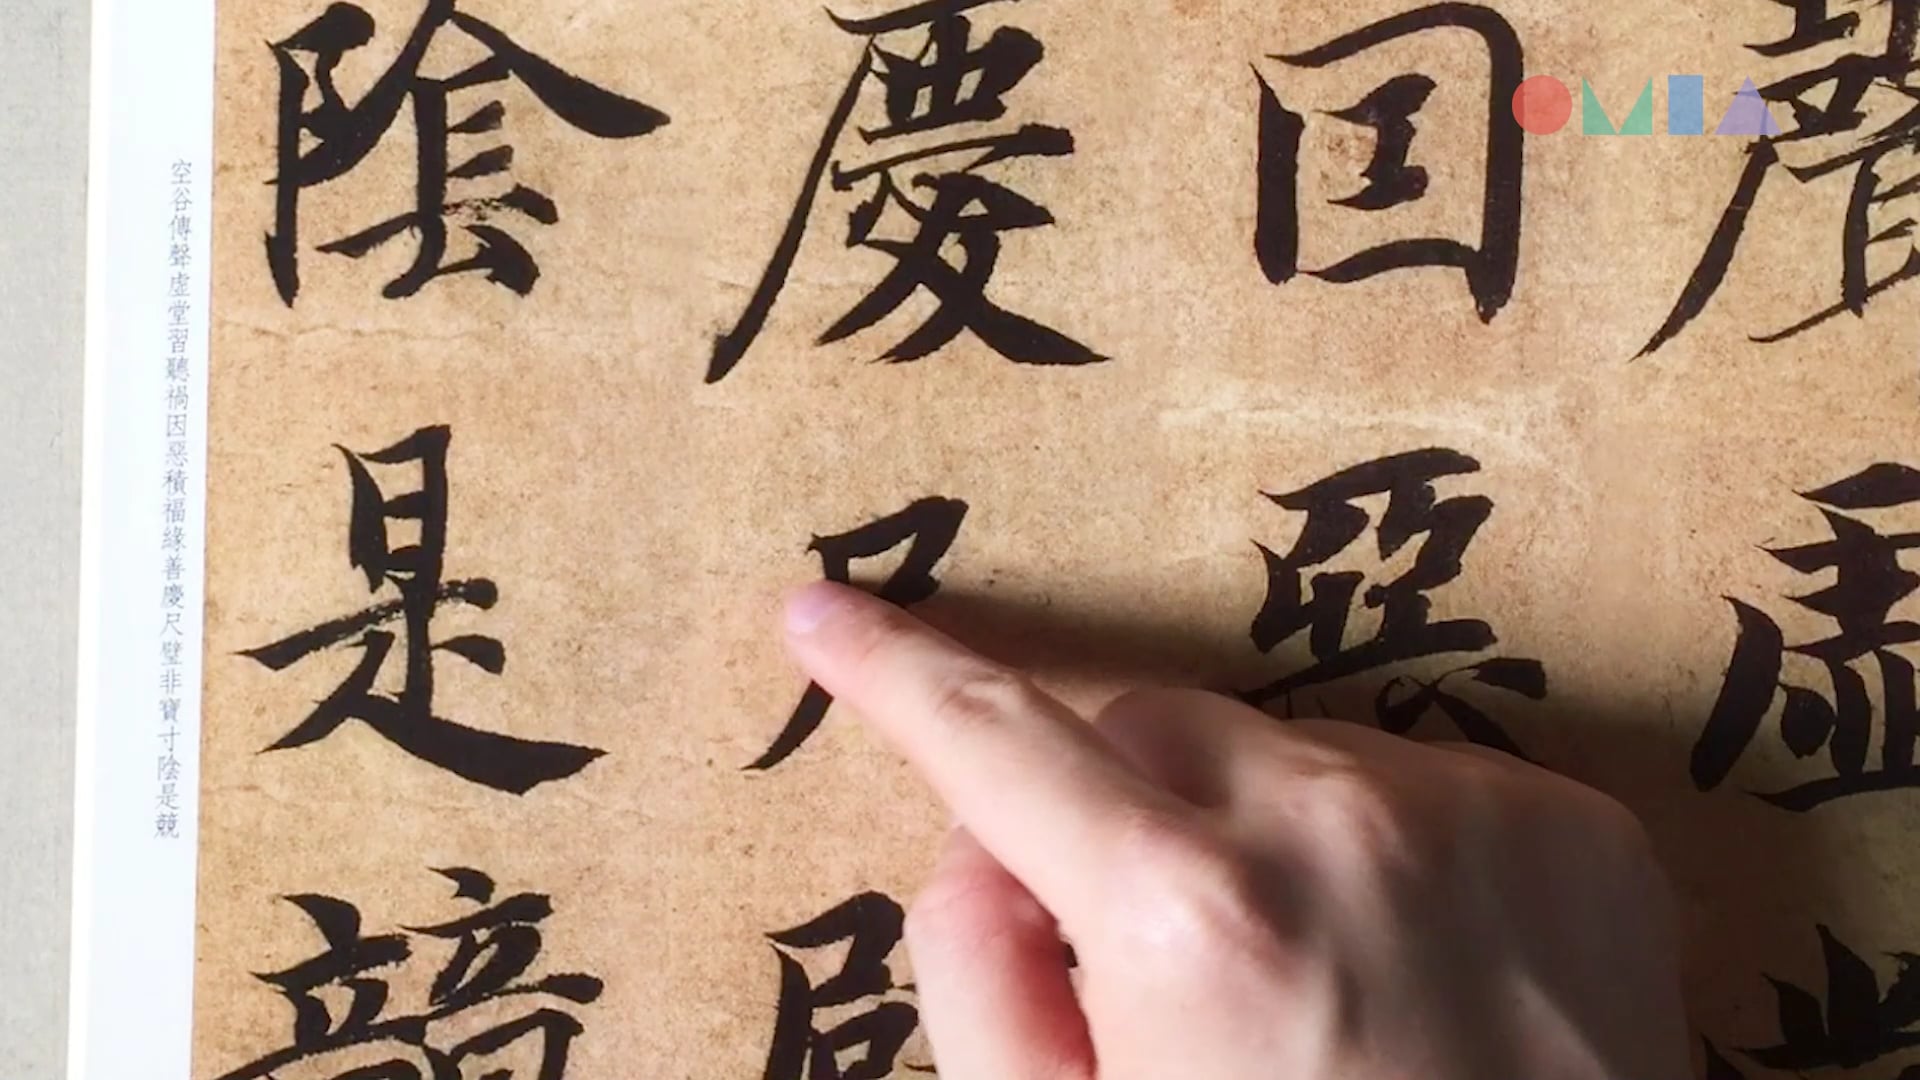 聲虛
因惡
慶尺璧
陰是競
空谷傳聲虛堂習聽禍因惡積福緣善慶尺璧非寶寸陰是競
OMIA